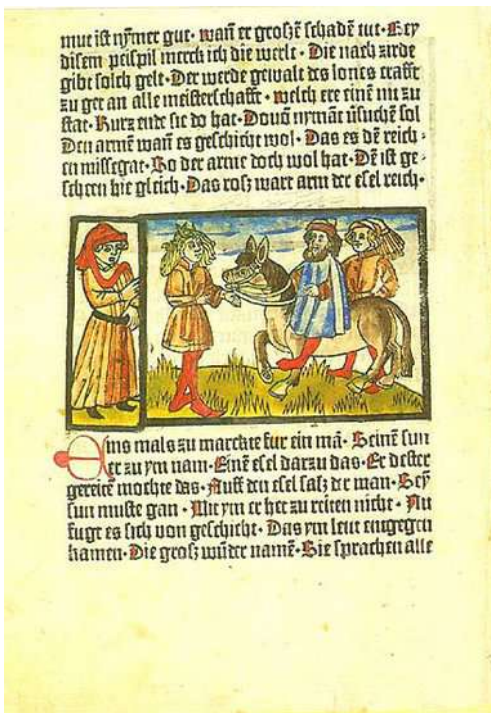 mut ist nỹmer gut · wañ er groszē schadē tut · Bey
disem peispil merck ich die werlt · Die nach zirde
gibt solch gelt · Der werde gewalt des lones crafft
zu ger an alle meisterschafft · welch ere einē nu zu
stat · Kurz ende sie do hat · Douō nymāt ṽsuchē sol
Den armē wañ es geschicht wol · Das es dē reich ⸗
en missegat · So der arme doch wol hat · Dē ist ge ⸗
scheen hie gleich · Das rosz wart arm der esel reich ·
Eins mals zu marckte fur ein mā · Seinē sun
er zu ym nam · Einē esel darzu das · Er dester
gereitē mochte das · Auff den esel sasz der man · Seȳ
sun muste gan · Mit ym er het zu reiten nicht · Nu
fugt es sich von geschicht · Das ym leut entgegen
kamen · Die grosz wūder namē · Sie sprachen alle